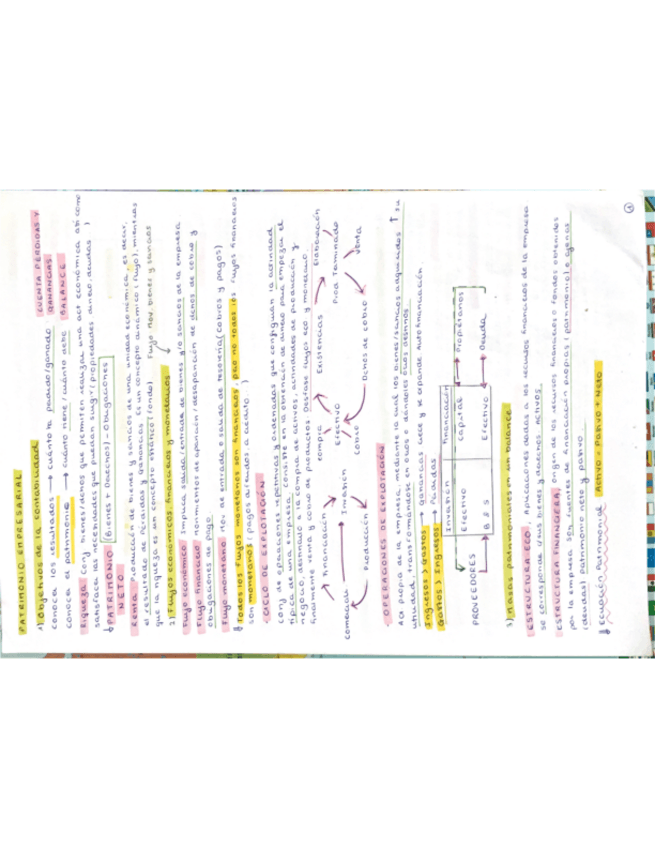 PATRIMONIO EMPRESARIAL
1) Objetivos de la contabilidad
conocer los resultados → cuánto he perdido/ganado CUENTA PÉRDIDAS Y GANANCIAS
conocer el patrimonio → cuánto tiene/cuánto debe BALANCE
Riqueza conj bienes/dchos que permiten realizar una act económica así como
satisfacer las necesidades que puedan surgir (propiedades, dinero, deudas)
PATRIMONIO NETO (Bienes + Derechos) - Obligaciones
Renta Producción de bienes y servicios de una unidad económica, es decir,
el resultado de pérdidas y ganancias. Es un concepto dinámico (flujo), mientras
que la riqueza es un concepto estático (fondo) Flujo mov. bienes y servicios
2) Flujos económicos, financieros y monetarios
Flujo económico Implica salida/entrada de bienes y/o servicios de la empresa
Flujo financiero movimientos de aparición/desaparición de dchos de cobro y
obligaciones de pago
Flujo monetario Mov de entrada o salida de tesorería (cobros y pagos)
Todos los flujos monetarios son financieros, pero no todos los flujos financieros
son monetarios (pagos a crédito)
CICLO DE EXPLOTACIÓN
conj de operaciones repetitivas y ordenadas que configuran la actividad
típica de una empresa. Consiste en la obtención de dinero para empezar el
negocio, destinarlo a la compra de activos, actividades de producción y
finalmente venta y cobro de productos. Desfase flujos eco y monetario
Financiación compra Existencias Elaboración
Comercial → Inversión Efectivo Prod Terminado
Producción cobro Dchos de cobro Venta
OPERACIONES DE EXPLOTACIÓN
Act propia de la empresa, mediante la cual los bienes/servicios adquiridos ↑ su
utilidad, transformándose en otros o dándoles otros destinos
Ingresos > Gastos → ganancias crece y se expande autofinanciación
Gastos > Ingresos → Pérdidas
Inversión Financiación
Efectivo Capital Propietarios
PROVEEDORES B y S Efectivo Deuda
3) Masas patrimoniales en un balance
ESTRUCTURA ECO. Aplicaciones dadas a los recursos financieros de la empresa
se corresponde a sus bienes y derechos. Activos
ESTRUCTURA FINANCIERA, origen de los recursos financieros o fondos obtenidos
por la empresa. Son fuentes de financiación propias (patrimonio) o ajenas
(deudas) patrimonio neto y pasivo
Ecuación Patrimonial Activo = Pasivo + Neto